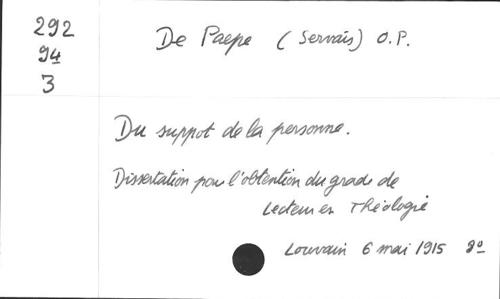 292
94
3
De Paepe (Servais) O.P.
Du suppot de la personne.
Dissertation pour l'obtention du grade de
Lecteur en Théologie
Louvain 6 mai 1915 8º